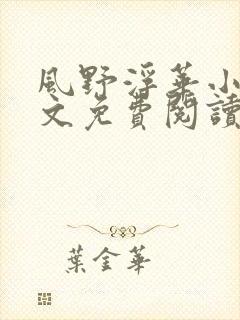 風野浮華小
文免費閱讀
葉金華